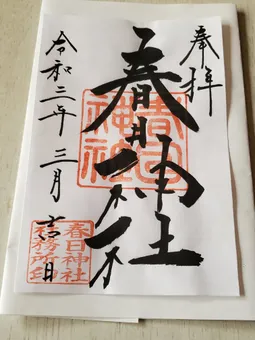 奉拝
春日神社
春日神社
令和二年三月日
春日神社
社務所印